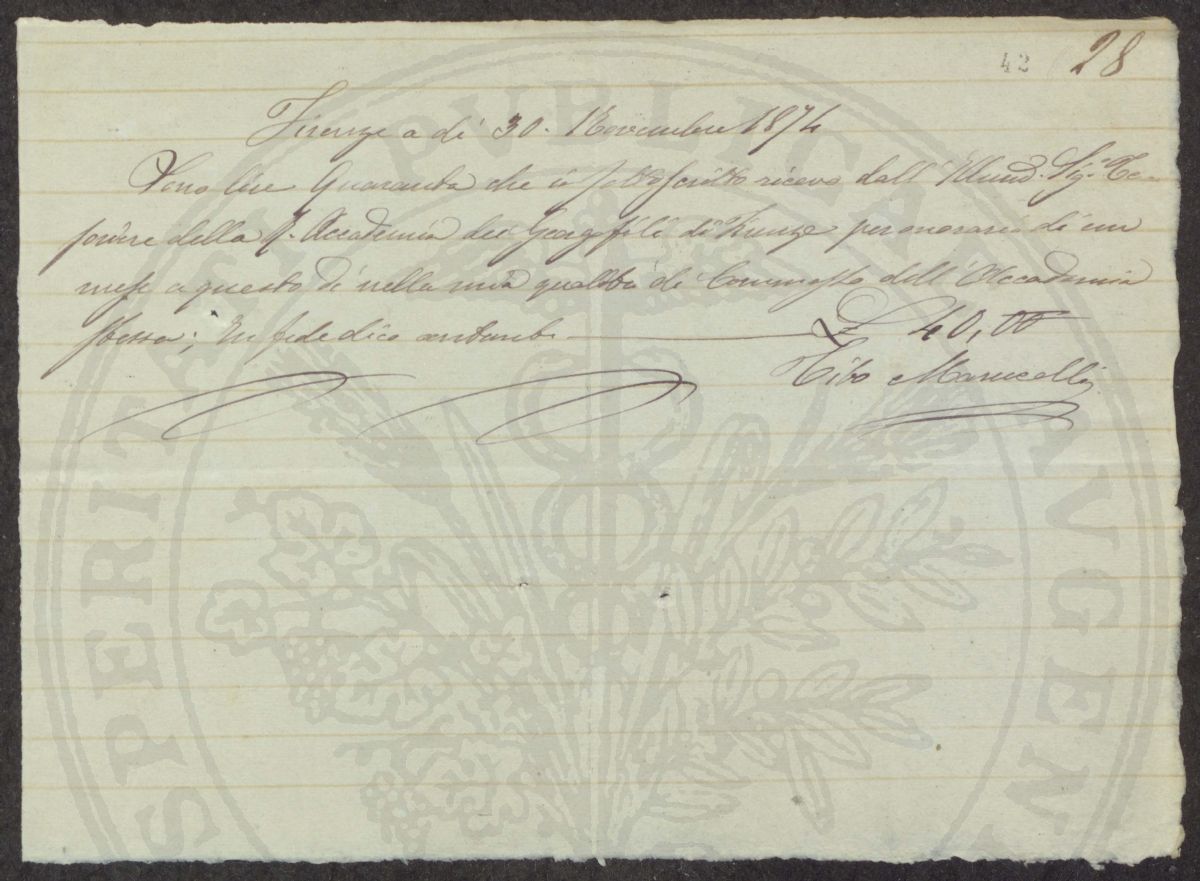 42 28
Firenze a dì 30. Novembre 1874
Sono lire Quaranta che io sottoscritto ricevo dall' Illmo. Sig. Te-
soriere della R. Accademia dei Georgofili di Firenze per onorario di un
mese a questo dì nella mia qualità di Commesso dell' Accademia
stessa; In fede dico contanti £ 40,00
Tito Marucelli
PERITATI PVBLICAE AVGEN